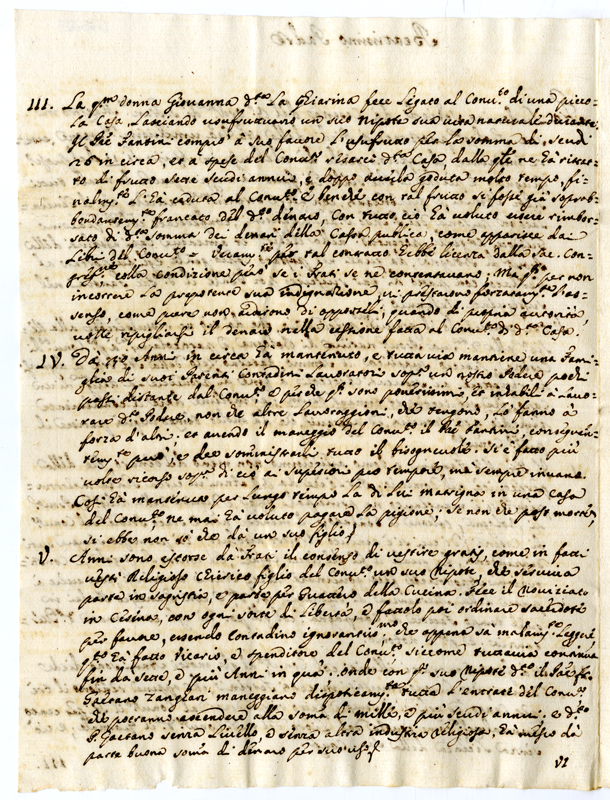 III. La qm donna Giovanna d.ta La Chiarina fece Legato al Conv.to di una picco-
la Casa, Lasciando usufruttuario un suo Nipote sua vita naturale durante;
Il Pre Fantini comprò à suo favore L'usufrutto per la somma di scudi
26 in circa, et à spese del Conv.to risarcì d.ta Casa, dalla q.le ne hà ritrat-
to di frutto sette scudi annui, e doppo d'averla goduta molto tempo, fi-
nalm.te L'hà ceduta al Conv.to E benche con tal frutto si fosse già soprab-
bondantem.te francato del d.to denaro, Con tutto ciò hà voluto essere rimbor-
sato di d.ta somma dei denari della Cassa publica, come apparisce dai
Libri del Conv.to per tal contratto s'ebbe licenza dalla Sac. Con-
greg.ne colla condizione però se i Frati se ne contentavano; Ma q.sti per non
incorrere La prepotente sua indegnazione, vi prestarono forzatam.te L'as-
senso, come pure non ardirono di opporsi, quando di propria autorità
volle ripigliarsi il denaro nella cessione fatta al Conv.to di d.ta Casa.
IV. Da Anni in circa hà mantenuto, e tuttavia mantiene una Fami-
glia di suoi Parenti Contadini Lavoratori sop.a un nostro Podere pochi
passi distante dal Conv.to E perche q.sti sono poverissimi, et inabili à Lavo-
rare d.to Podere, non che altre Lavoraggioni, che tengono, Lo fanno à
forza d'altri; et avendo il maneggio del Conv.to il Pre Fantini, conseguen-
tem.te può, e deve somministrarli tutto il bisognevole. Si è fatto più
volte ricorso sop.a di ciò ai Superiori pro tempore, mà sempre invano.
Così hà mantenuta per Lungo tempo La di Lui matrigna in una Casa
del Conv.to ne mai hà voluto pagare La pigione; Se non che post mortem,
si ebbe non sò che da un suo figlio.
V. Anni sono estorse da Frati il consenso di vestire gratis, come in fatti
vestì Religioso Chierico figlio del Conv.to un suo Nipote, che serviva
parte in sagristia, e parte per Guattero della Cucina. Fece il Noviziato
in Cesena, con ogni sorte di Libertà, e fattolo poi ordinare sacerdote
per favore, essendo Contadino ignorantiss.mo, che appena sà malam.te Leggere
q.sto hà fatto Vicario, e Spenditore del Conv.to siccome tuttavia continua
fin da sette, e più Anni in quà. onde con q.sto suo Nipote d.to il Pad.e Fr.
Gaetano Zangheri maneggiano dispoticam.te tutta L'entrate del Conv.to
che potranno ascendere alla soma di mille, e più scudi annui. e d.to
P. Gaetano senza Livello, e senza altra industria Religiosa, hà messo da
parte buona soma di denaro per suo uso.
VI